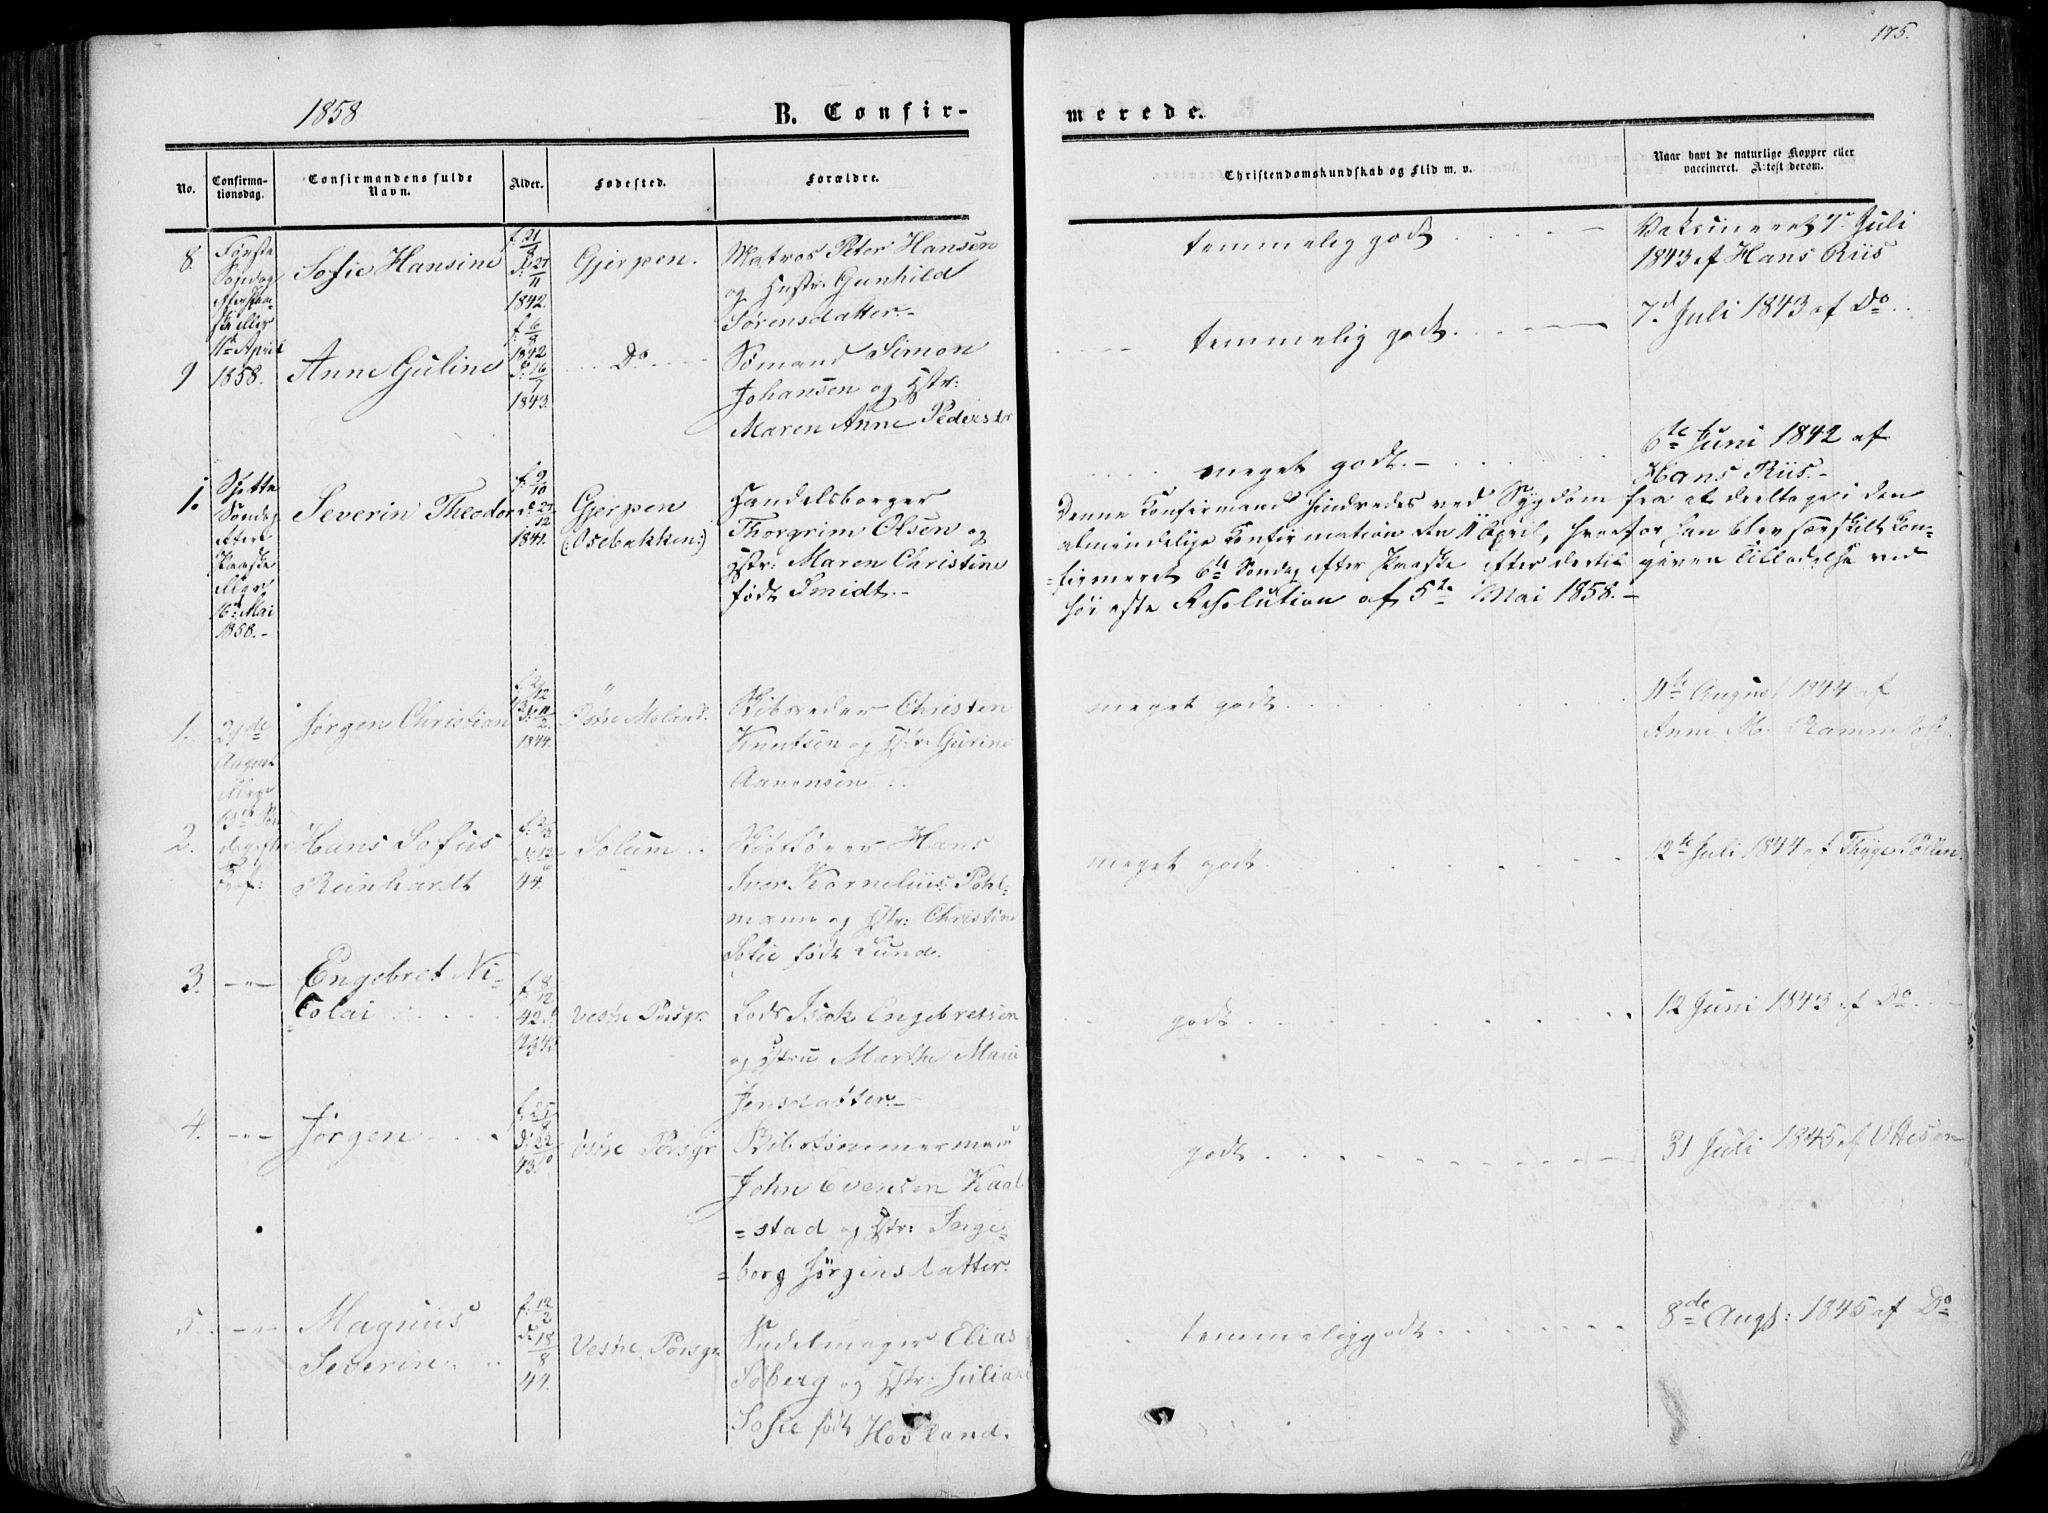 175.
1858
B. Confir-
merede.
No.
Confirma-
tionsdag.
Confirmandens fulde
Navn.
Alder.
Fødested.
Forældre.
Christendomskundskab og Flid m. v.
Naar havt de naturlige Kopper eller
vaccineret. Attest derom.
8.
Første
Søndag
11te April
1858.
Sofie Hansine
f. 21
d. 27
11
1842.
Gjerpen.
Matros Peter Hansen
og Hustr: Gunhild
Sørensdatter.-
temmelig godt
Vaksineret 7de Juli
1843 af Hans Riis
9
Anne Guline
f. 6
8
1842
d. 16
7
1843.
Do
Sømand Simon
Johansen og Hstr:
Maren Anne Pedersdr
temmelig godt
7d Juli 1843 af Do
1.
Sjette
Søndag
efter
Paaske
16de Mai
1858.-
Severin Theodor
f. 9
10
d. 27
12
1841.
Gjerpen
(:Osebakken:)
Handelsborger
Thorgrim Olsen og
Hstr: Maren Christine
født Smidt.-
meget godt.-
6te Juni 1842 af
Hans Riis.-
Denne Konfirmand hindredes ved Sygdom fra at deeltage i den
almindelige Konfirmation den 11 April, hvorfor han blev særskilt Kon-
-firmeret 6te Søndag efter Paaske efter dertil given Tilladelse ved
høieste Resolution af 5te Mai 1858.-
1.
29de
August
Jørgen Christian
12
11
2
1844.
Moland.
Skibsreder Christen
Knutsen og Hstr: Gurine
Aanonsen
meget godt
11te August 1844 af
Anne M. Ramm
2.
Hans Sofus
Reinhardt
12
44.
Solum
Skibsfører Hans
Iver Kornelius Pohl-
mann og Hstr: Christine
Sofie født Lund.
meget godt
12te Juli 1844 af Thyge
3.
-"-
Engebret Ni-
=colai
f. 8
12
42.
Vestre Porsgr.
Lods Isak Engebretsen
og Hstru Marthe Marie
Jensdatter.-
godt
12 Juni 1843 af Do
4.
-"-
Jørgen
f. 25
d. 22
43.
Østre Porsgr
Skibstømmermand
John Evensen Kaal
=stad og Hstr: Inge-
=borg Jørgensdatter.
godt
31 Juli 1845 af
5.
-"-
Magnus
Severin
f. 12
2
d. 18
8
44.
Vestre Porsgr.
Sadelmager Elias
Søberg og Hstr: Juliane
Sofie født Hovland.
temmelig godt
8de Augst: 1845 af Do